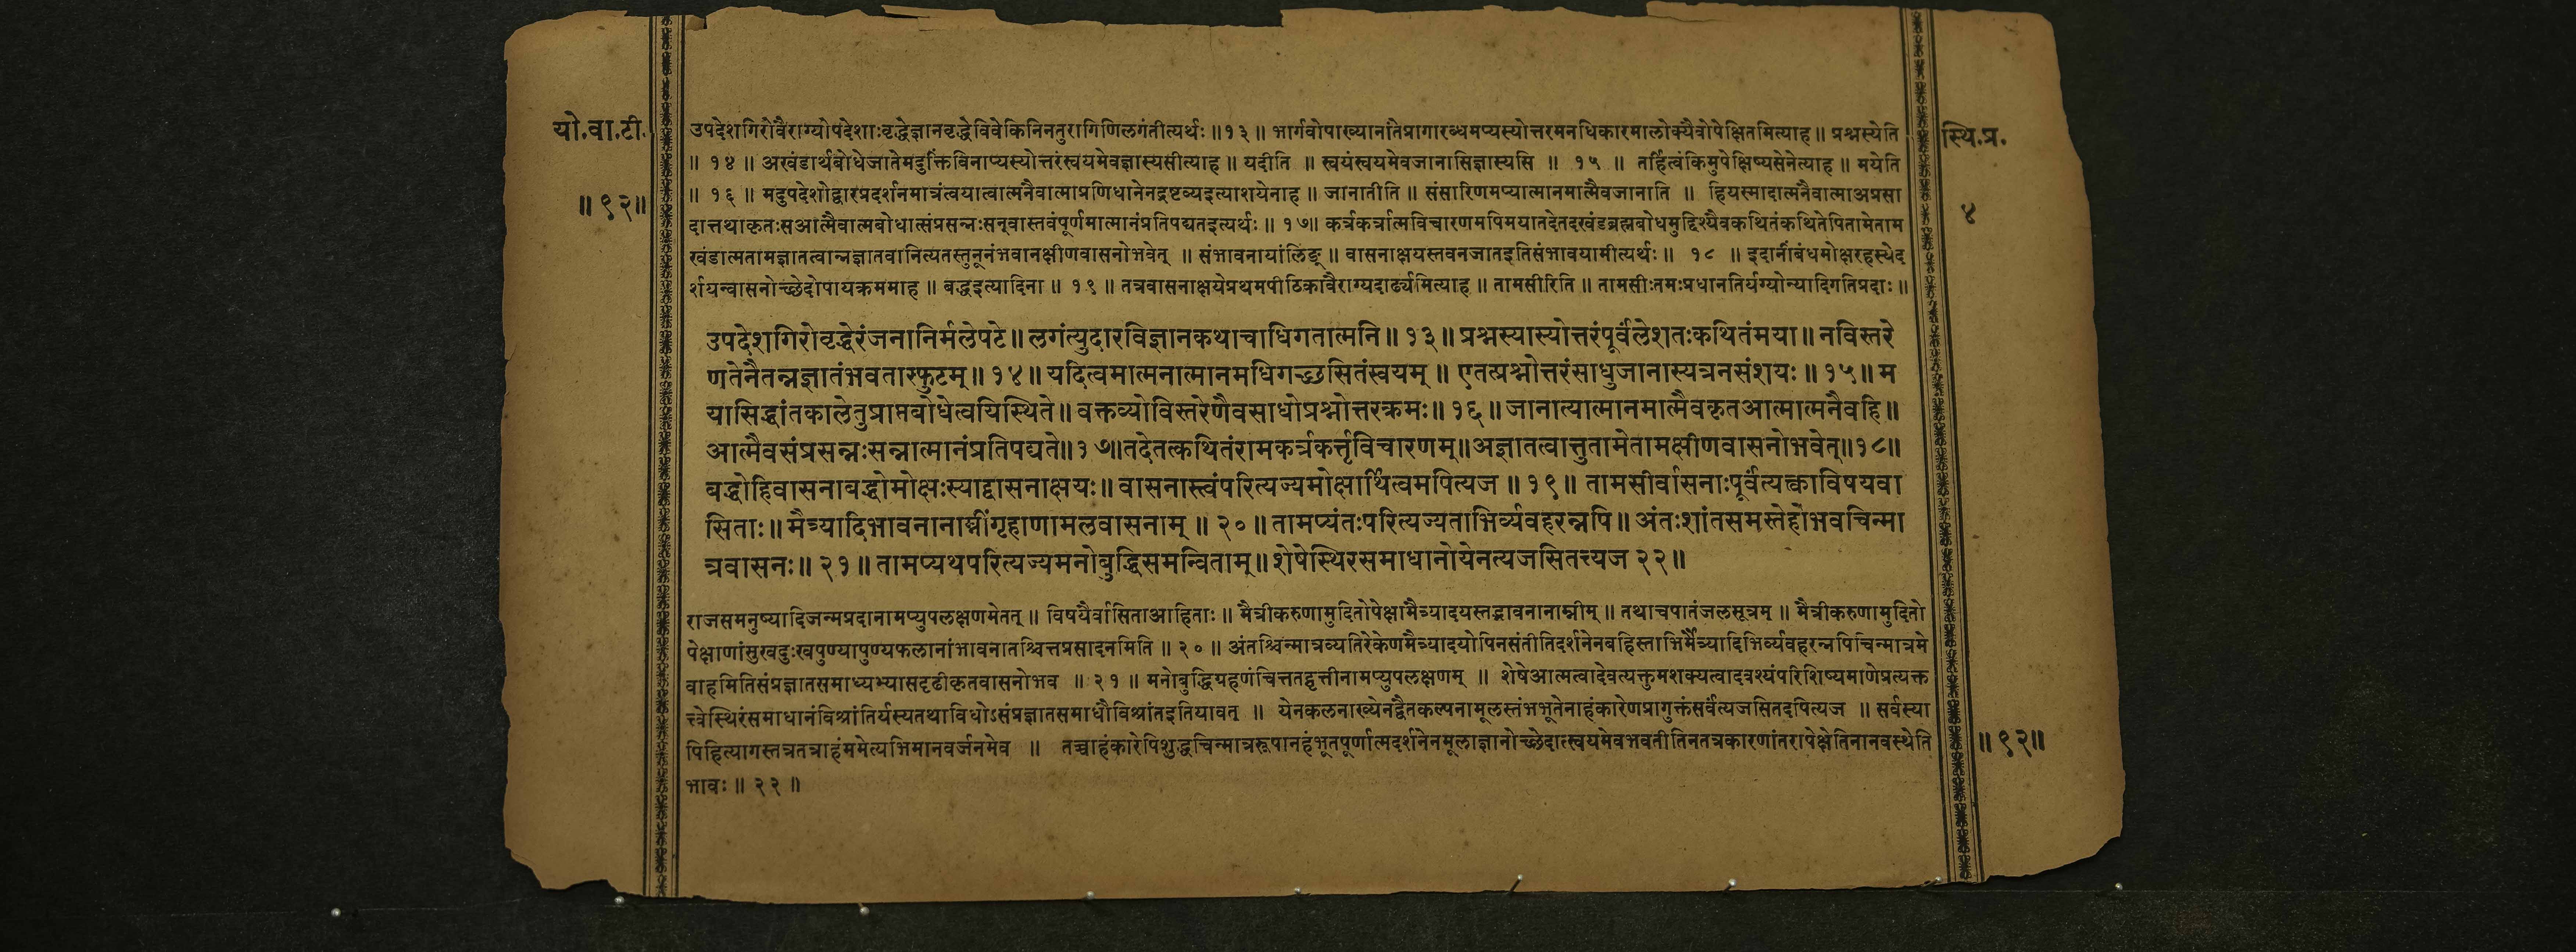 यो.वा.टी.
॥ ९२॥
स्थि.प्र.
४
उपदेशगिरोवैराग्योपदेशाःवृद्धेज्ञानवृद्धेविवेकिनिनतुरागिणिलगंतीत्यर्थः ॥१३॥ भार्गवोपाख्यानांतेप्रागारब्धमप्यस्योत्तरमनधिकारमालोक्यैवोपेक्षितमित्याह ॥ प्रश्नस्येति
॥ १४ ॥ अखंडार्थबोधेजातेमदुक्तिंविनाप्यस्योत्तरंस्वयमेवज्ञास्यसीत्याह ॥ यदीति ॥ स्वयंस्वयमेवजानासिज्ञास्यसि ॥ १५ ॥ तर्हित्वंकिमुपेक्षिष्यसेनेत्याह ॥ मयेति
॥ १६ ॥ मदुपदेशोद्वारप्रदर्शनमात्रंत्वयात्वात्मनैवात्माप्रणिधानेनद्रष्टव्यइत्याशयेनाह ॥ जानातीति ॥ संसारिणमप्यात्मानमात्मैवजानाति ॥ हियस्मादात्मनैवात्माअप्रसा
दात्तथाकृतःसआत्मैवात्मबोधात्संप्रसन्नःसन्वास्तवंपूर्णमात्मानंप्रतिपद्यतइत्यर्थः ॥ १७॥ कर्त्रकर्त्रात्मविचारणमपिमयातदेतदखंडब्रह्मबोधमुद्दिश्यैवकथितंकथितेपितामेताम
खंडात्मतामज्ञातत्वान्नज्ञातवानित्यतस्तुनूनंभवानक्षीणवासनोभवेत् ॥ संभावनायांलिङ् ॥ वासनाक्षयस्तवनजातइतिसंभावयामीत्यर्थः ॥ १८ ॥ इदानींबंधमोक्षरहस्येद
र्शयन्वासनोच्छेदोपायक्रममाह ॥ बद्धइत्यादिना ॥ १९ ॥ तत्रवासनाक्षयेप्रथमपीठिकावैराग्यदार्ढ्यमित्याह ॥ तामसीरिति ॥ तामसीःतमःप्रधानतिर्यग्योन्यादिगतिप्रदाः ॥
उपदेशगिरोवृद्धेरंजनानिर्मलेपटे॥ लगंत्युदारविज्ञानकथाचाधिगतात्मनि॥ १३॥ प्रश्नस्यास्योत्तरंपूर्वंलेशतःकथितंमया॥ नविस्तरे
णतेनैतन्नज्ञातंभवतास्फुटम्॥ १४॥ यदित्वमात्मनात्मानमधिगच्छसितंस्वयम्॥ एतत्प्रश्नोत्तरंसाधुजानास्यत्रनसंशयः॥ १५॥ म
यासिद्धांतकालेतुप्राप्तबोधेत्वयिस्थिते॥ वक्तव्योविस्तरेणैवसाधोप्रश्नोत्तरक्रमः॥ १६॥ जानात्यात्मानमात्मैवकृतआत्मात्मनैवहि॥
आत्मैवसंप्रसन्नःसन्नात्मानंप्रतिपद्यते॥१७॥तदेतत्कथितंरामकर्त्रकर्त्तृविचारणम्॥अज्ञातत्वात्तुतामेतामक्षीणवासनोभवेत्॥१८॥
बद्धोहिवासनाबद्धोमोक्षःस्याद्वासनाक्षयः॥ वासनास्त्वंपरित्यज्यमोक्षार्थित्वमपित्यज॥ १९॥ तामसीर्वासनाःपूर्वंत्यक्त्वाविषयवा
सिताः॥ मैत्र्यादिभावनानाम्नींगृहाणामलवासनाम्॥ २०॥ तामप्यंतःपरित्यज्यताभिर्व्यवहरन्नपि॥ अंतःशांतसमस्तेहोभवचिन्मा
त्रवासनः॥ २१॥ तामप्यथपरित्यज्यमनोबुद्धिसमन्विताम्॥ शेषेस्थिरसमाधानोयेनत्यजसितत्त्यज २२॥
राजसमनुष्यादिजन्मप्रदानामप्युपलक्षणमेतत् ॥ विषयैर्वासिताआहिताः ॥ मैत्रीकरुणामुदितोपेक्षामैत्र्यादयस्तद्भावनानाम्नीम् ॥ तथाचपातंजलसूत्रम् ॥ मैत्रीकरुणामुदितो
पेक्षाणांसुखदुःखपुण्यापुण्यफलानांभावनातश्चित्तप्रसादनमिति ॥ २० ॥ अंतश्चिन्मात्रव्यतिरेकेणमैत्र्यादयोपिनसंतीतिदर्शनेनबहिस्ताभिर्मैत्र्यादिभिर्व्यवहरन्नपिचिन्मात्रमे
वाहमितिसंप्रज्ञातसमाध्यभ्यासदृढीकृतवासनोभव ॥ २१ ॥ मनोबुद्धिग्रहणंचित्ततद्वृत्तीनामप्युपलक्षणम् ॥ शेषेआत्मत्वादेवत्यक्तुमशक्यत्वादवश्यंपरिशिष्यमाणेप्रत्यक्त
त्त्वेस्थिरंसमाधानंविश्रांतिर्यस्यतथाविधोऽसंप्रज्ञातसमाधौविश्रांतइतियावत् ॥ येनकलनाख्येनद्वैतकल्पनामूलस्तंभभूतेनाहंकारेणप्रागुक्तंसर्वंत्यजसितदपित्यज ॥ सर्वस्या
पिहित्यागस्तत्रतत्राहंममेत्यभिमानवर्जनमेव ॥ तच्चाहंकारेपिशुद्धचिन्मात्ररूपानहंभूतपूर्णात्मदर्शनेनमूलाज्ञानोच्छेदात्स्वयमेवभवतीतिनतत्रकारणांतरापेक्षेतिनानवस्थेति
भावः ॥ २२ ॥
॥ ९२॥